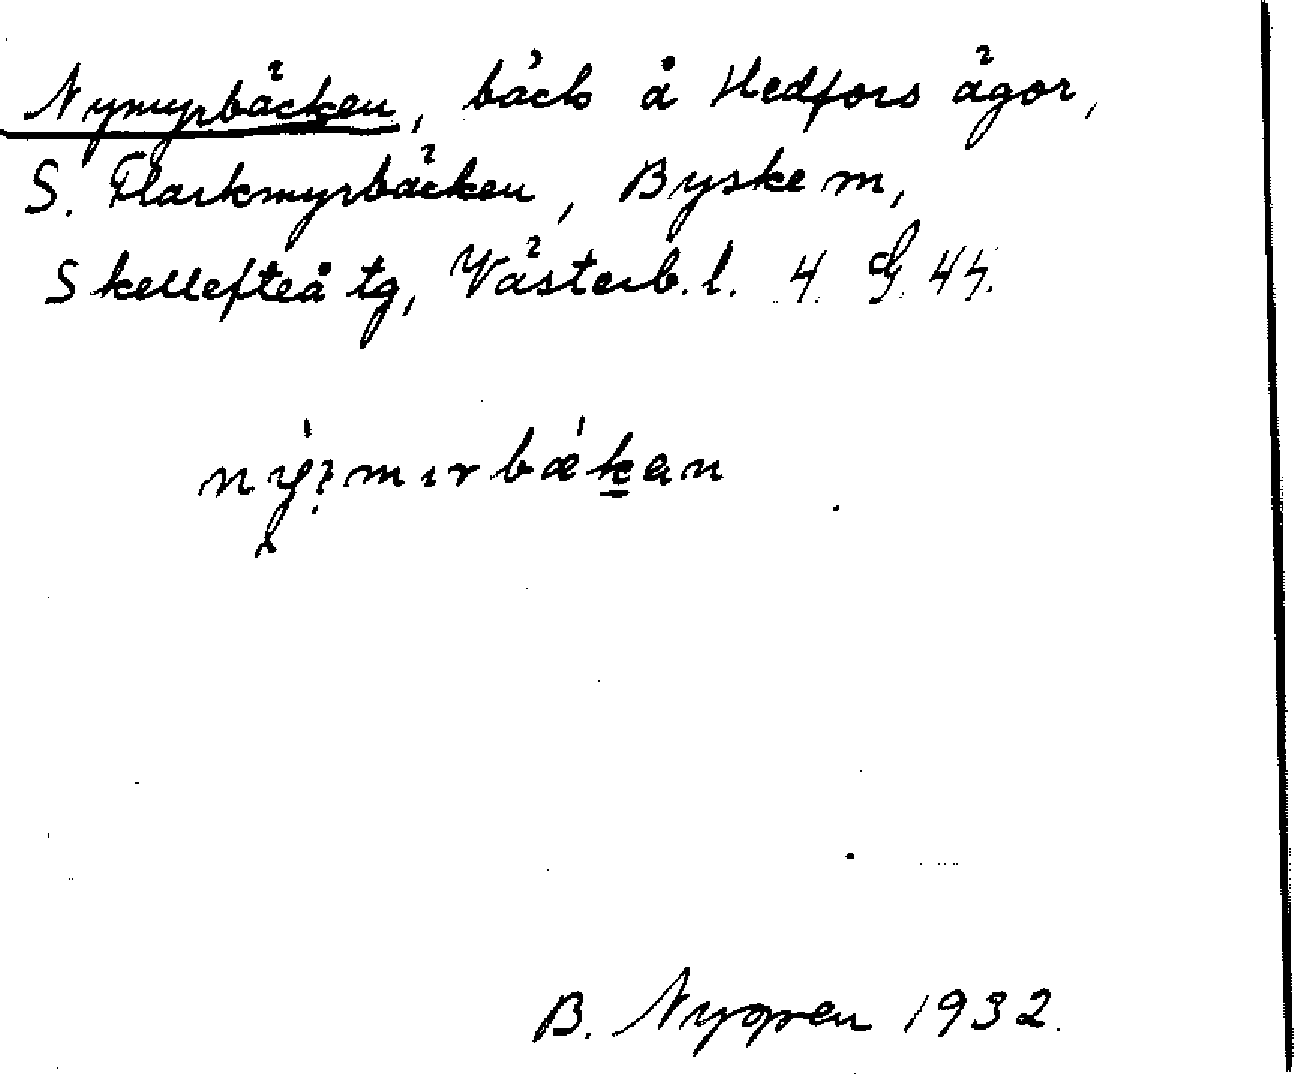 Nymyrbäcken, bäck å Hedfors ägor,
S. Flarkmyrbäcken, Byske m,
Skellefteå tg, Västerb. l. 4. G. 45.
nẏ:mırbækan
B. Nygren 1932.